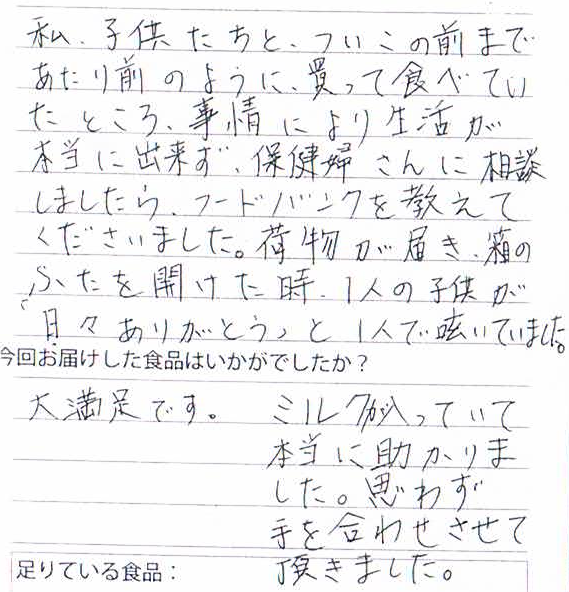 私、子供たちと、ついこの前まで
あたり前のように、買って食べてい
たところ、事情により生活が
本当に出来ず、保健婦さんに相談
しましたら、フードバンクを教えて
くださいました。荷物が届き、箱の
ふたを開けた時、1人の子供が
「日々ありがとう」と1人で呟いていました。
今回お届けした食品はいかがでしたか？
大満足です。 ミルクが入っていて
本当に助かりま
した。思わず
手を合わせさせて
頂きました。
足りている食品：